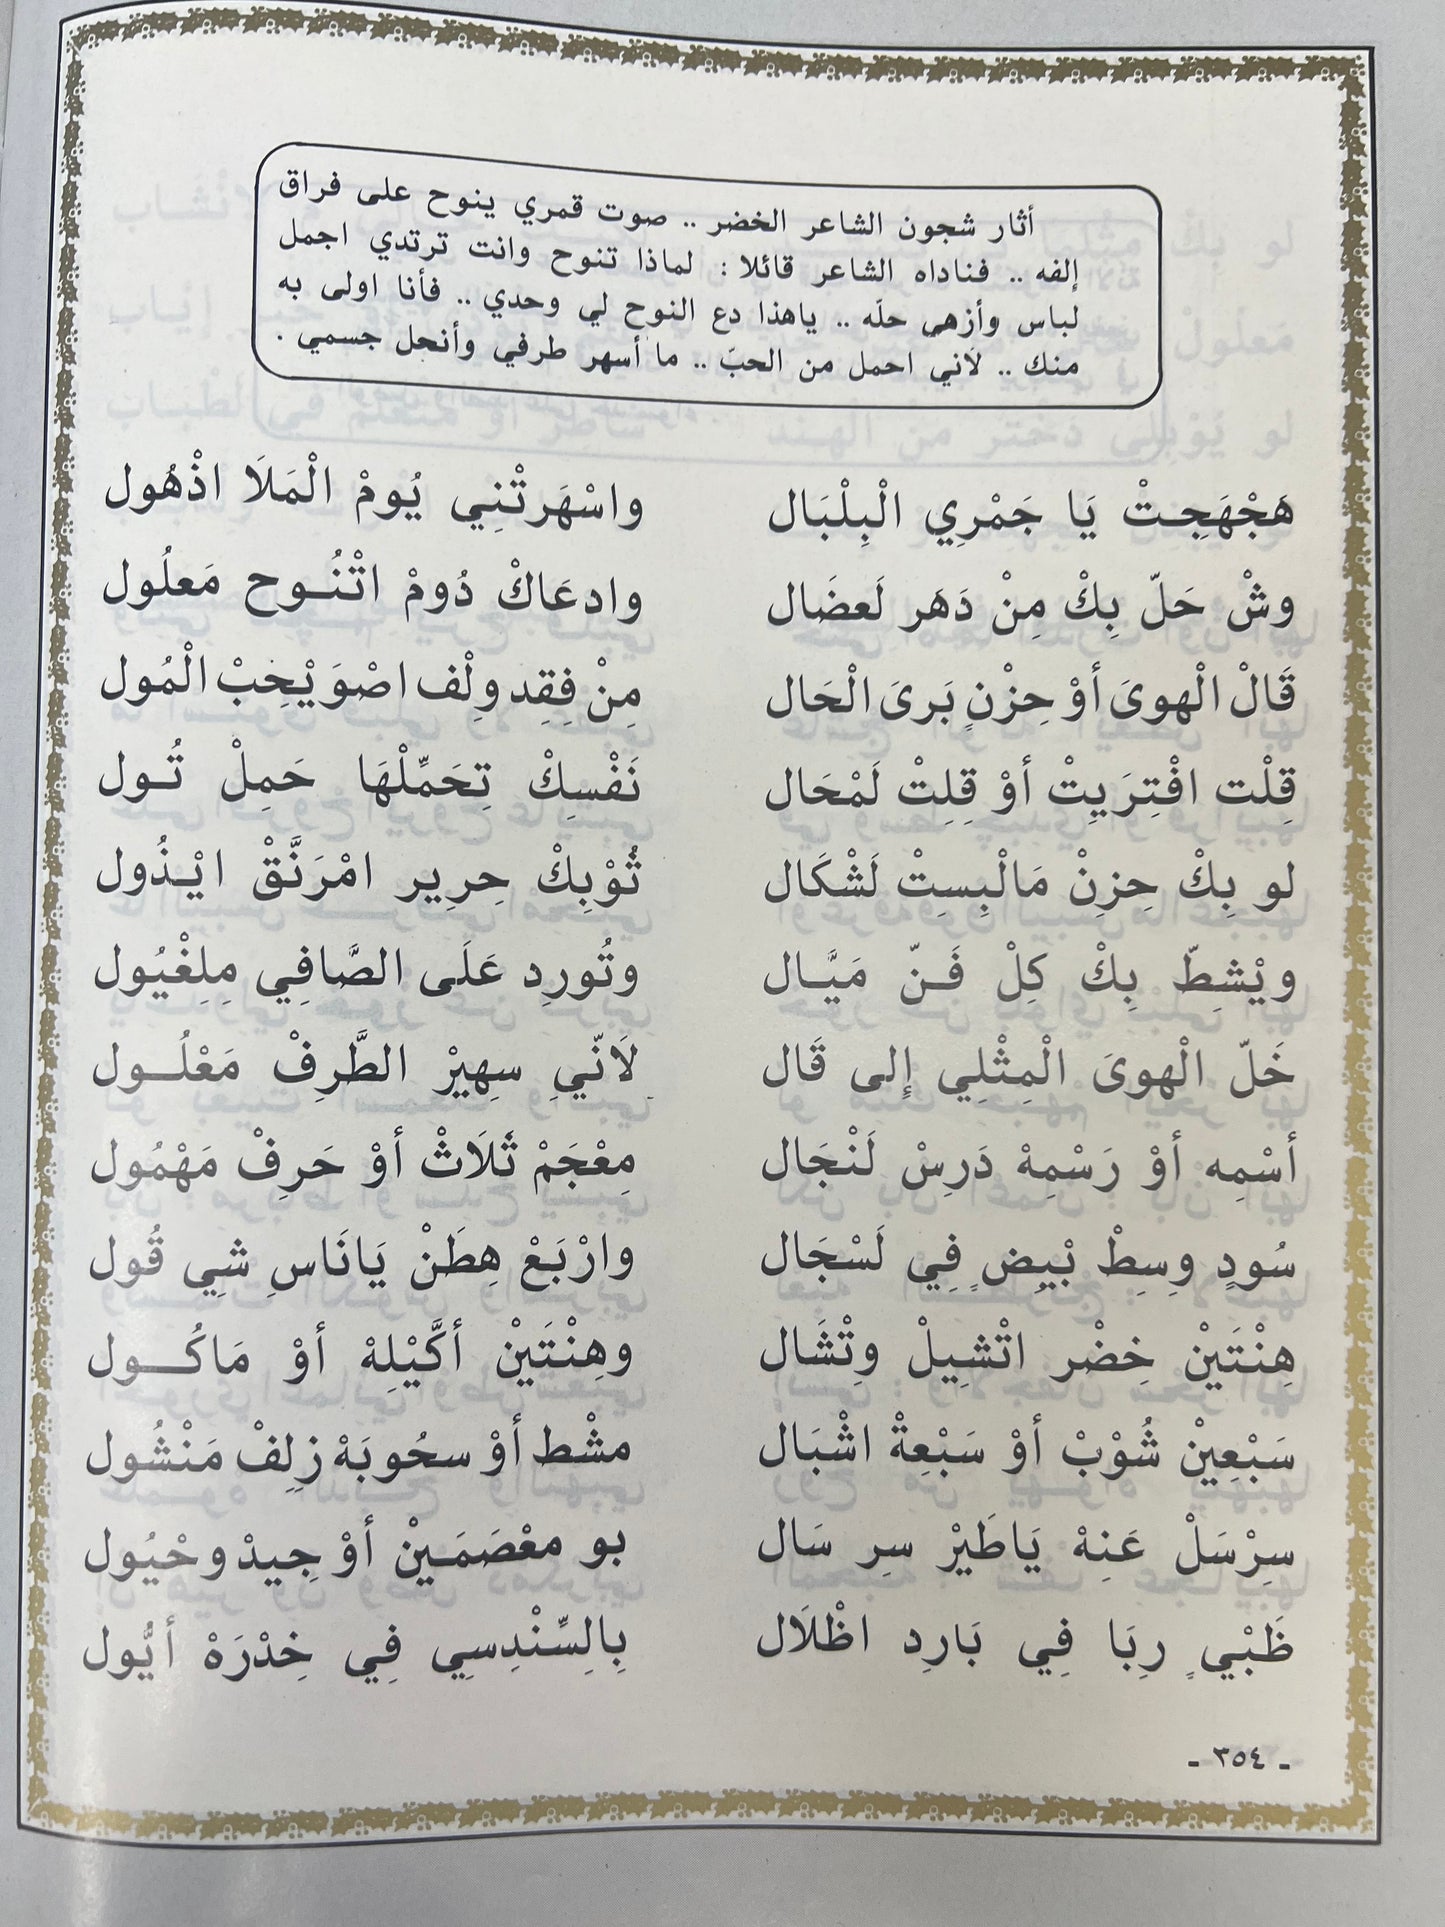 أثار شجون الشاعر الخضر .. صوت قمري ينوح على فراق
إلفه .. فناداه الشاعر قائلا : لماذا تنوح وانت ترتدي اجمل
لباس وأزهى حلّه .. ياهذا دع النوح لي وحدي .. فأنا اولى به
منك .. لأني احمل من الحبّ .. ما أسهر طرفي وأنحل جسمي .
هَجْهَجِـتْ يَا جَمْرِي الْبِلْبَال واسْهَرتْنِي يُومْ الْمَلَا اذْهُول
وشْ حَلّ بِكْ مِنْ دَهَر لَعضَال وادعَاكْ دُومْ اتْنُـوح مَعلُول
قَالْ الْهوىَ أوْ حِزْنٍ بَرىَ الْحَال مِنْ فِقِد وِلْف اصْوَيْحِبْ الْمُول
قِلْت افْتِرَيِتْ أوْ قِلِتْ لَمْحَال نَفْسِكْ تِحَمِّلْهَا حَمِلْ تُـول
لو بِكْ حِزِنْ مَالْبِسِتْ لَشْكَال ثُوْبِكْ حِرِير امْرَنَّقْ ايْـذُول
ويْشِطّ بِكْ كِلْ فَـنّ مَيَّـال وتُورِد عَلَى الصَّافِي مِلِغْيُول
خَلّ الْهوىَ الْمِثْلِي إلى قَال لَانّي سِهِيْر الطَّرِفْ مَعْلُـول
أسْمِه أوْ رَسْمِهْ دَرِسْ لَنْجَال مِعْجَمْ ثَلَاثْ أوْ حَرِفْ مَهْمُول
سُودٍ وِسِطْ بْيِضٍ فِي لَسْجَال وارْبَعْ هِطَنْ يَانَاسِ شِي قُول
هِنْتَيْن خِضْر اتْشِيلْ وِتْشَال وهِنْتَيْن أكَّيْلِهْ أوْ مَاكُـول
سَبْعِيْن شُوْبْ أوْ سَبْعِةْ اشْبَال مشْط أوْ سحُوبَهْ زِلِفْ مَنْشُول
سِرْسَلْ عَنِهْ يَاطَيْر سِر سَال بو معْصَمَـيْن أوْ جِيدْ وحْيُول
ظَبْيٍ رِبَا فِي بَارِد اظْلَال بِالسِّنْدِسِي فِي خِدْرَهْ أيُّول
- ٣٥٤ -